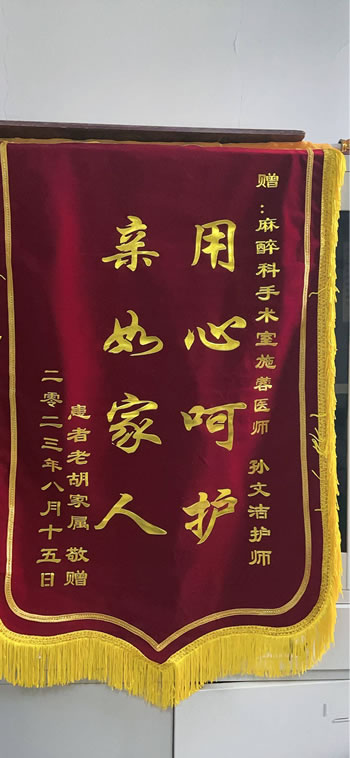 赠：麻醉科手术室施蓉医师 孙文洁护师
用心呵护
亲如家人
患者老胡家属 敬赠
二零二三年八月十五日